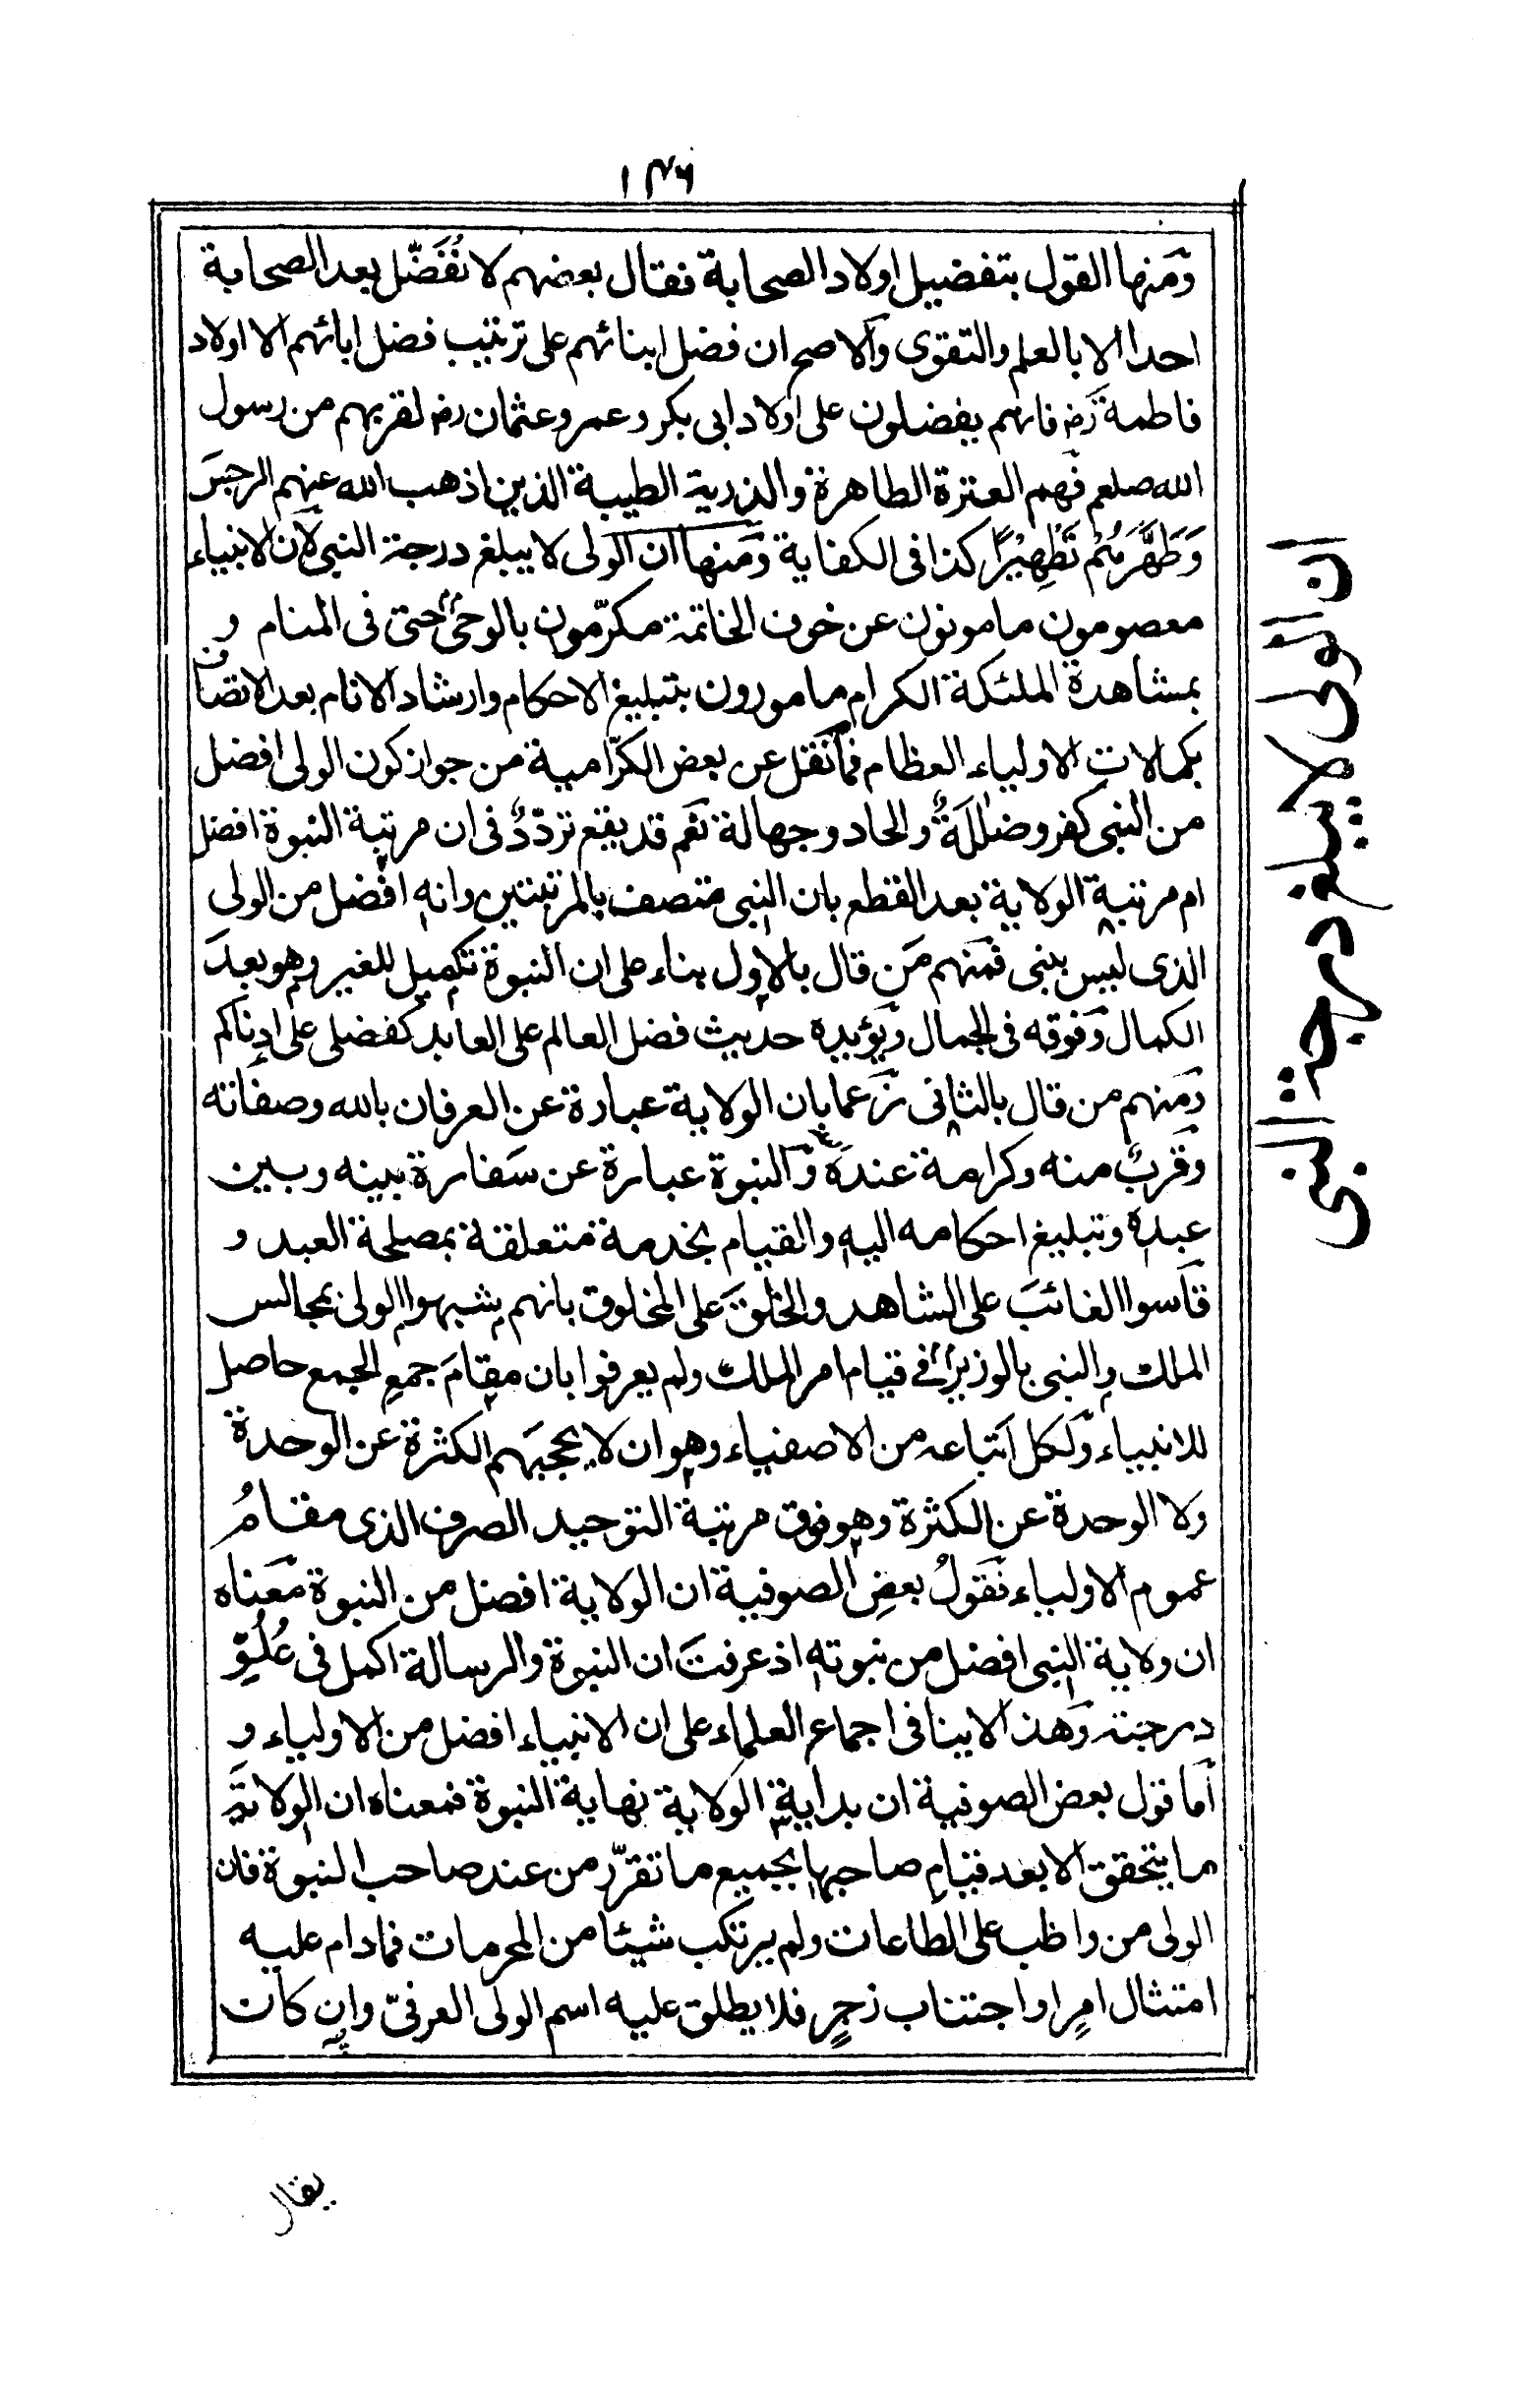 ١٣٦
ومنها القول بتفضيل اولاد الصحابة فقال بعضهم لا نُفَضّل بعد الصحابة
احدا الا بالعلم والتقوى والاصح ان فضل ابنائهم على ترتيب فضل ابائهم الا اولاد
فاطمة رض فانهم يفضلون على اولاد ابى بكر وعمر وعثمان رض لقربهم من رسول
الله صلعم فهم العترة الطاهرة والذرية الطيبة الذين اذهب الله عنهم الرجس
وَطَهَّرَهُمْ تَطْهِيْرًا كذا فى الكفاية ومنها ان الولى لا يبلغ درجة النبى لان الانبياء
معصومون مامونون عن خوف الخاتمة مكرّمون بالوحى حتى فى المنام و
بمشاهدة الملئكة الكرام مامورون بتبليغ الاحكام وارشاد الانام بعد الاتصاف
بكمالات الاولياء العظام فما نقل عن بعض الكرّامية من جواز كون الولى افضل
من النبى كفر وضلالةٌ والحاد وجهالة نعم قد يقع تردّدٌ فى ان مرتبة النبوة افضل
ام مرتبة الولاية بعد القطع بان النبى متصف بالمرتبتين وانه افضل من الولى
الذى ليس بنبى فمنهم مَن قال بالاول بناء على ان النبوة تكميل للغير وهو بعدَ
الكمال وفوقه فى الجمال ويؤيده حديث فضل العالم على العابد كفضلى على ادناكم
ومنهم من قال بالثانى زعما بان الولاية عبارة عن العرفان بالله وصفاته
وقربٌ منه وكرامة عنده والنبوة عبارة عن سَفارة بينه وبين
عبده وتبليغ احكامه اليه والقيام بخدمة متعلقة بمصلحة العبد و
قاسوا الغائبَ على الشاهد والخالقَ على المخلوق بانهم يشبهوا الولى بمجالس
الملك والنبى بالوزير فى قيام امر الملك ولم يعرفوا بان مقامَ جمع الجمع حاصل
للانبياء ولكل اتباعه من الاصفياء وهو ان لا يحجبهم الكثرة عن الوحدة
ولا الوحدة عن الكثرة وهو فوق مرتبة التوحيد الصرف الذى مقامُ
عموم الاولياء فقولُ بعضِ الصوفية ان الولاية افضل من النبوة معناه
ان ولاية النبى افضل من نبوته اذ عرفتَ ان النبوة والرسالة اكمل فى عُلُوِّ
درجته وهذا لا ينافى اجماع العلماء على ان الانبياء افضل من الاولياء و
اما قول بعض الصوفية ان بداية الولاية نهاية النبوة فمعناه ان الولاية
ما يتحقق الا بعد قيام صاحبها بجميع ما تقرّر من عند صاحب النبوة فان
الولى من واظب على الطاعات ولم يرتكب شيئا من المحرمات فما دام عليه
امتثال امرٍ او اجتناب زجرٍ فلا يطلق عليه اسم الولى العرفىّ وان كان
ان الولى لا يبلغ درجة النبى
يقال